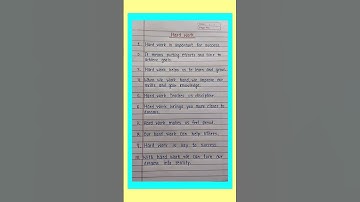 Hard work
1. Hard work is important for success.
2. It means putting efforts and time to
achieve goals.
3. Hard work helps us to learn and grow.
4. When we work hard, we improve our
skills and gain knowledge.
5. Hard work teaches us discipline.
6. Hard work brings you more closer to
success.
7. Hard work makes us feel proud.
8. Our hard work can help others.
9. Hard work is key to success.
10. With hard work we can turn our
dreams into reality.